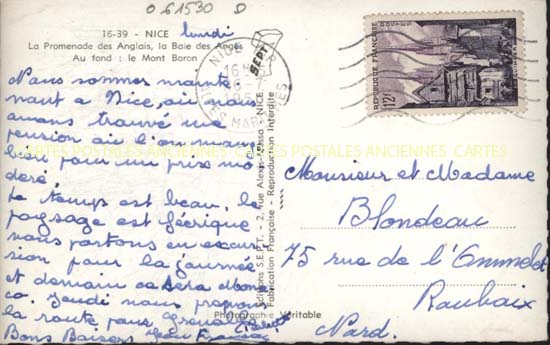 061530 D
16-39 - NICE lundi
La Promenade des Anglais, la Baie des Anges
Au fond : le Mont Boron
Nous sommes mainte
nant a Nice, où nous
avons trouvé une
pension où l'on mange
bien pour un prix mo
déré.
Le temps est beau, le
paysage est féérique
nous partons en excur
sion pour la journée
et demain ce sera Mona
co. Jeudi nous
la route pour Grenoble
Bons Baisers
Monsieur et Madame
Blondeau
75 rue de l'Ommelet
Roubaix
Nord.
Editions S.E.P.T. - 2, rue Alexis-Mossa - NICE
Fabrication Française - Reproduction Interdite
Photographie Véritable
SEPT
NICE
REPUBLIQUE FRANÇAISE
POSTES
12F
CARTES POSTALES ANCIENNES CARTES POSTALES ANCIENNES CARTES